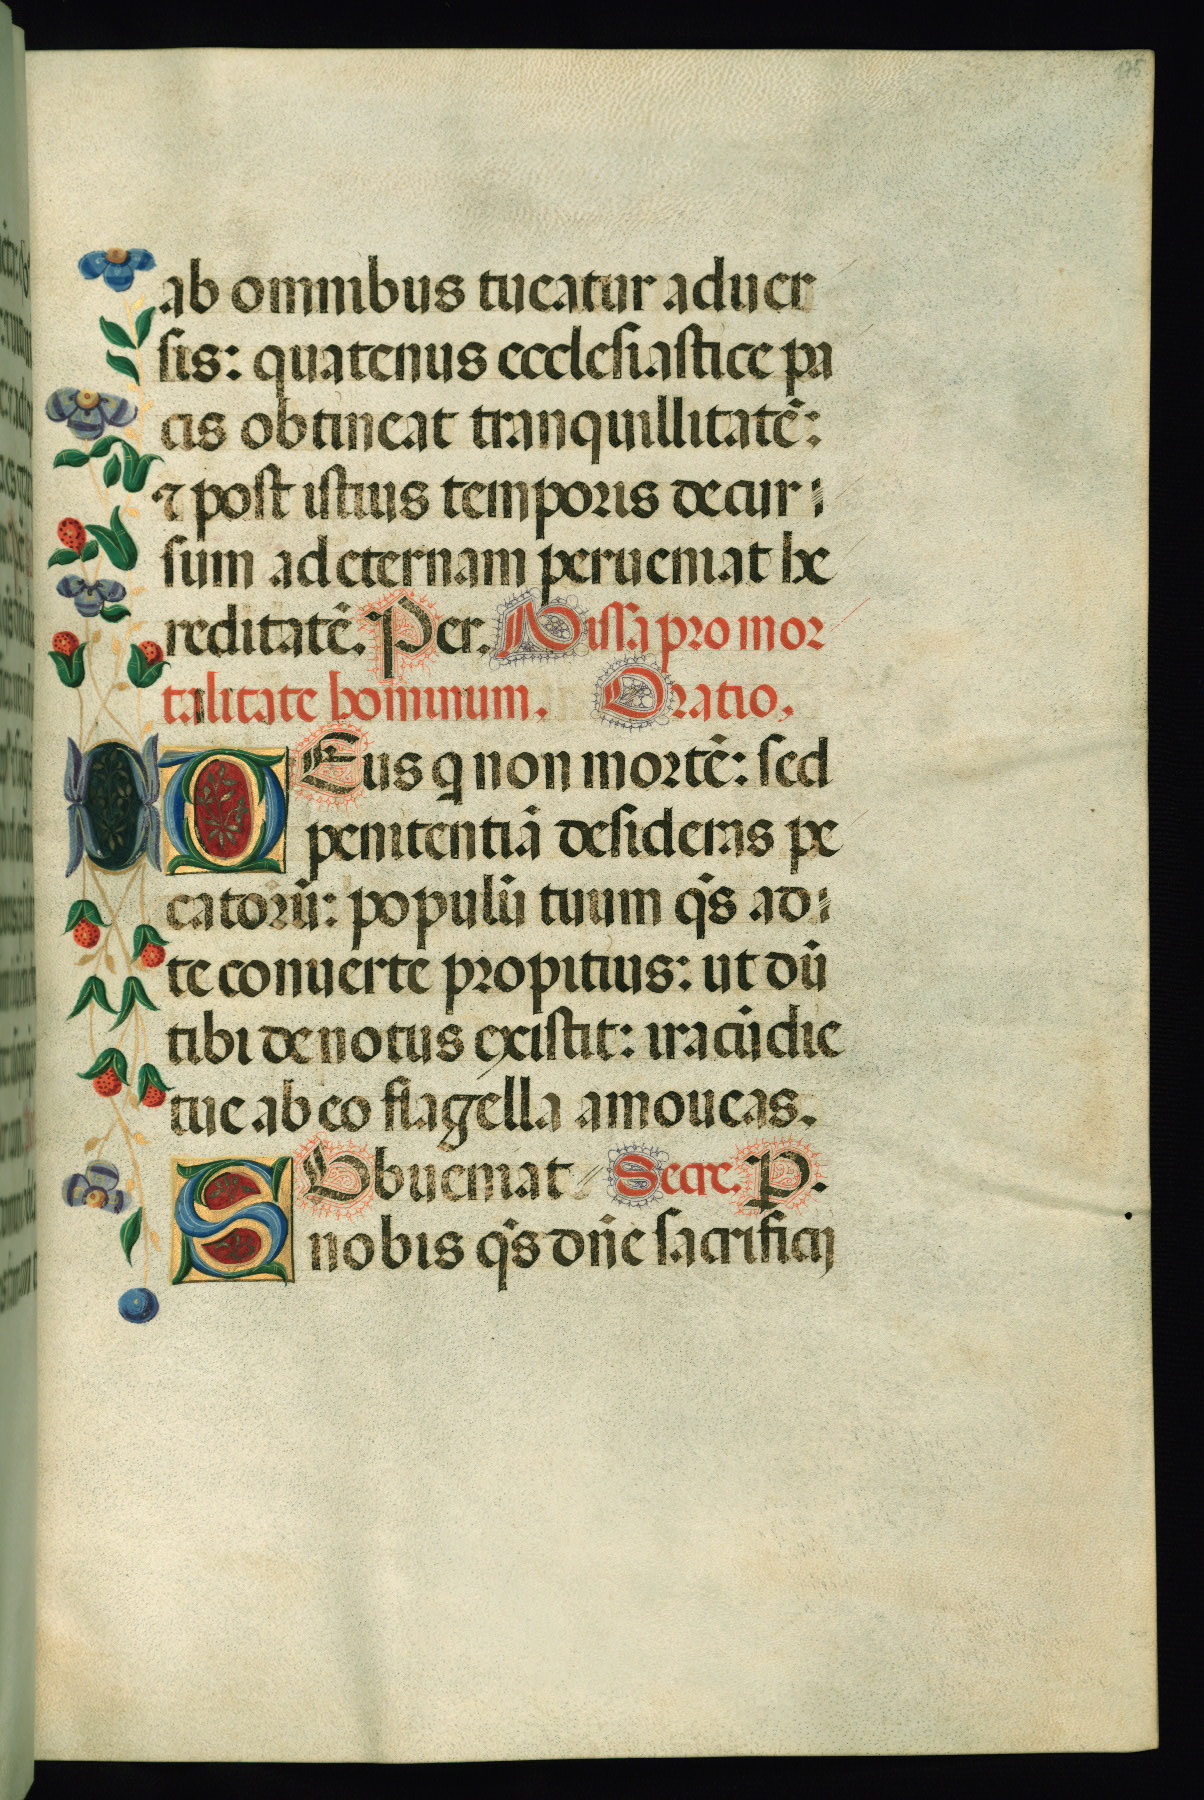 175
ab omnibus tueatur aduer
sis: quatenus ecclesiastice pa
cis obtineat tranquillitatē:
⁊ post istius temporis decur
sum ad eternam perueniat he
reditatē. Per. Missa pro mor
talitate hominum. Oratio.
DEus q non mortē: sed
penitentiā desideras pe
catorū: populū tuum qs̄ ad
te conuerte propitius: ut dū
tibi deuotus existit: iracūdie
tue ab eo flagella amoueas.
SUbueniat Secre. P.
nobis qs̄ dn̄e sacrificij